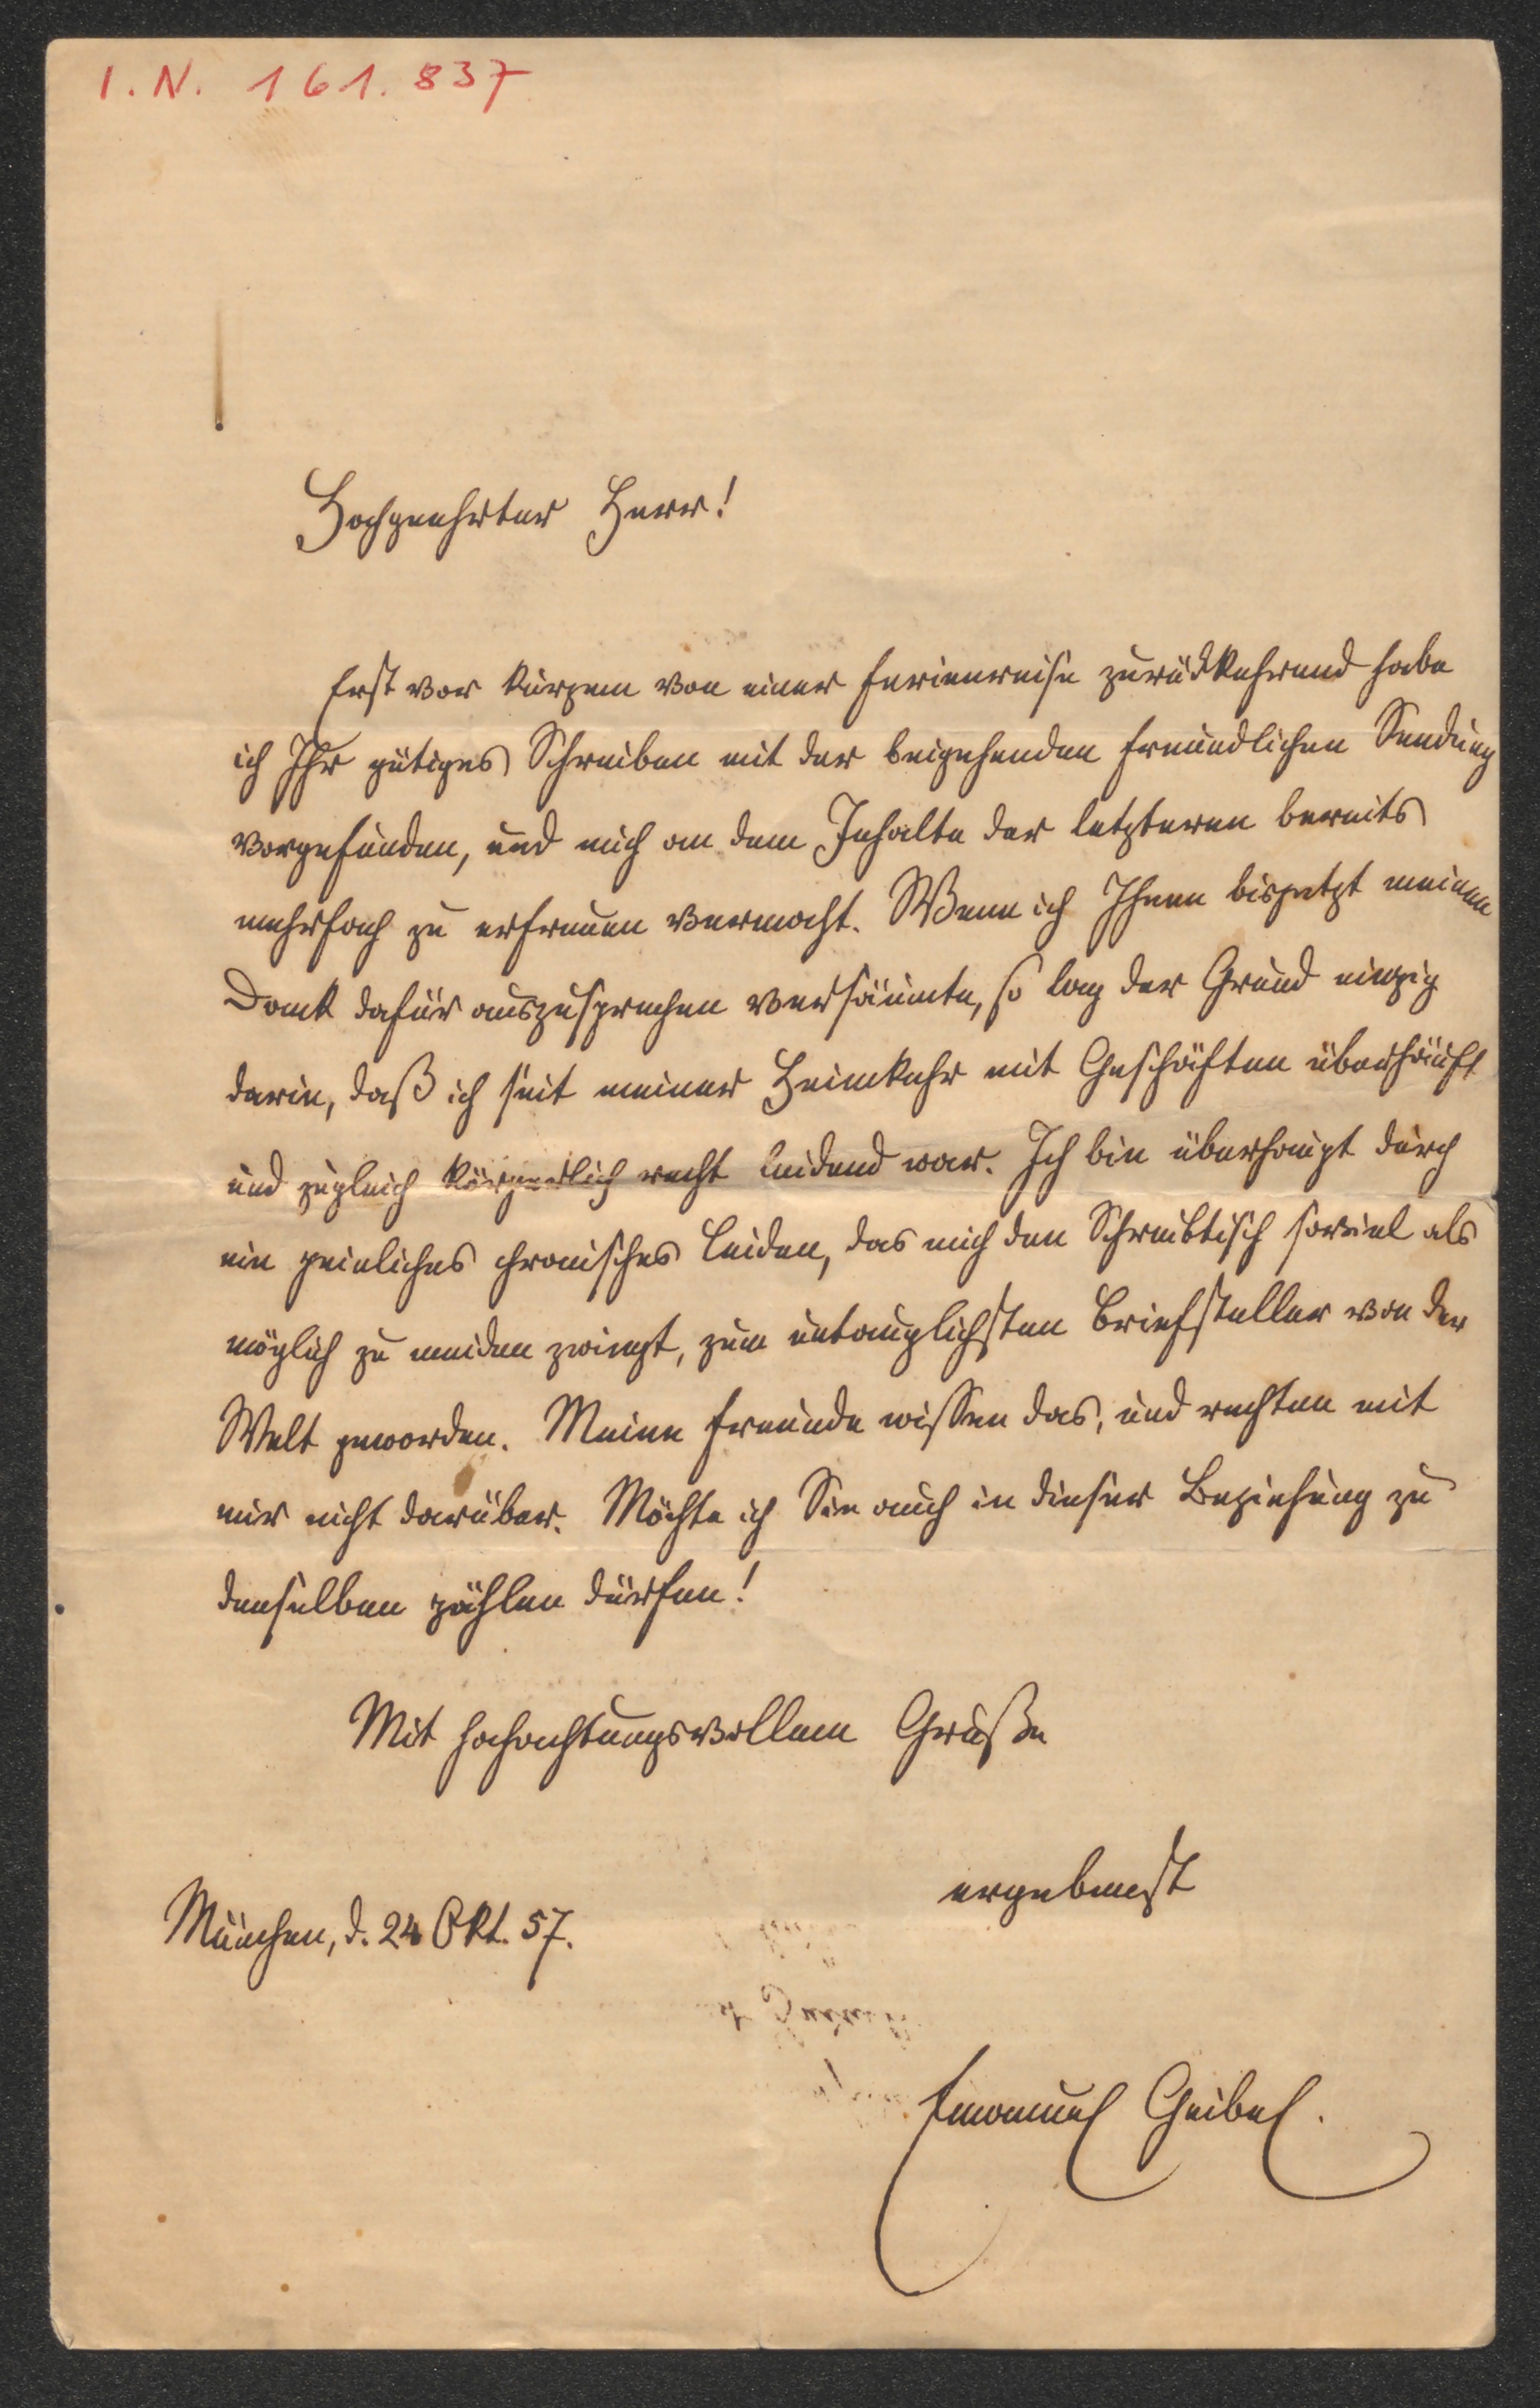 I. N. 161.837
Hochgeehrter Herr!
Erst vor kurzem von einer Ferienreise zurückkehrend habe
ich Ihr gütiges Schreiben mit der beigehenden freundlichen Sendung
vorgefunden, und mich an dem Inhalte der letzteren bereits
mehrfach zu erfreuen vermocht. Wenn ich Ihnen bisjetzt meinen
Dank dafür auszusprechen versäumte, so lag der Grund einzig
darin, daß ich seit meiner Heimkehr mit Geschäften überhäuft
und zugleich körperlich recht leidend war. Ich bin überhaupt durch
ein peinliches chronisches Leiden, das mich den Schreibtisch soviel als
möglich zu meiden zwingt, zum untauglichsten Briefsteller von der
Welt geworden. Meine Freunde wissen das, und rechten mit
mir nicht darüber. Möchte ich Sie auch in dieser Beziehung zu
denselben zählen dürfen!
Mit hochachtungsvollem Gruße
ergebenst
München, d. 24 Okt. 57.
Emanuel Geibel.